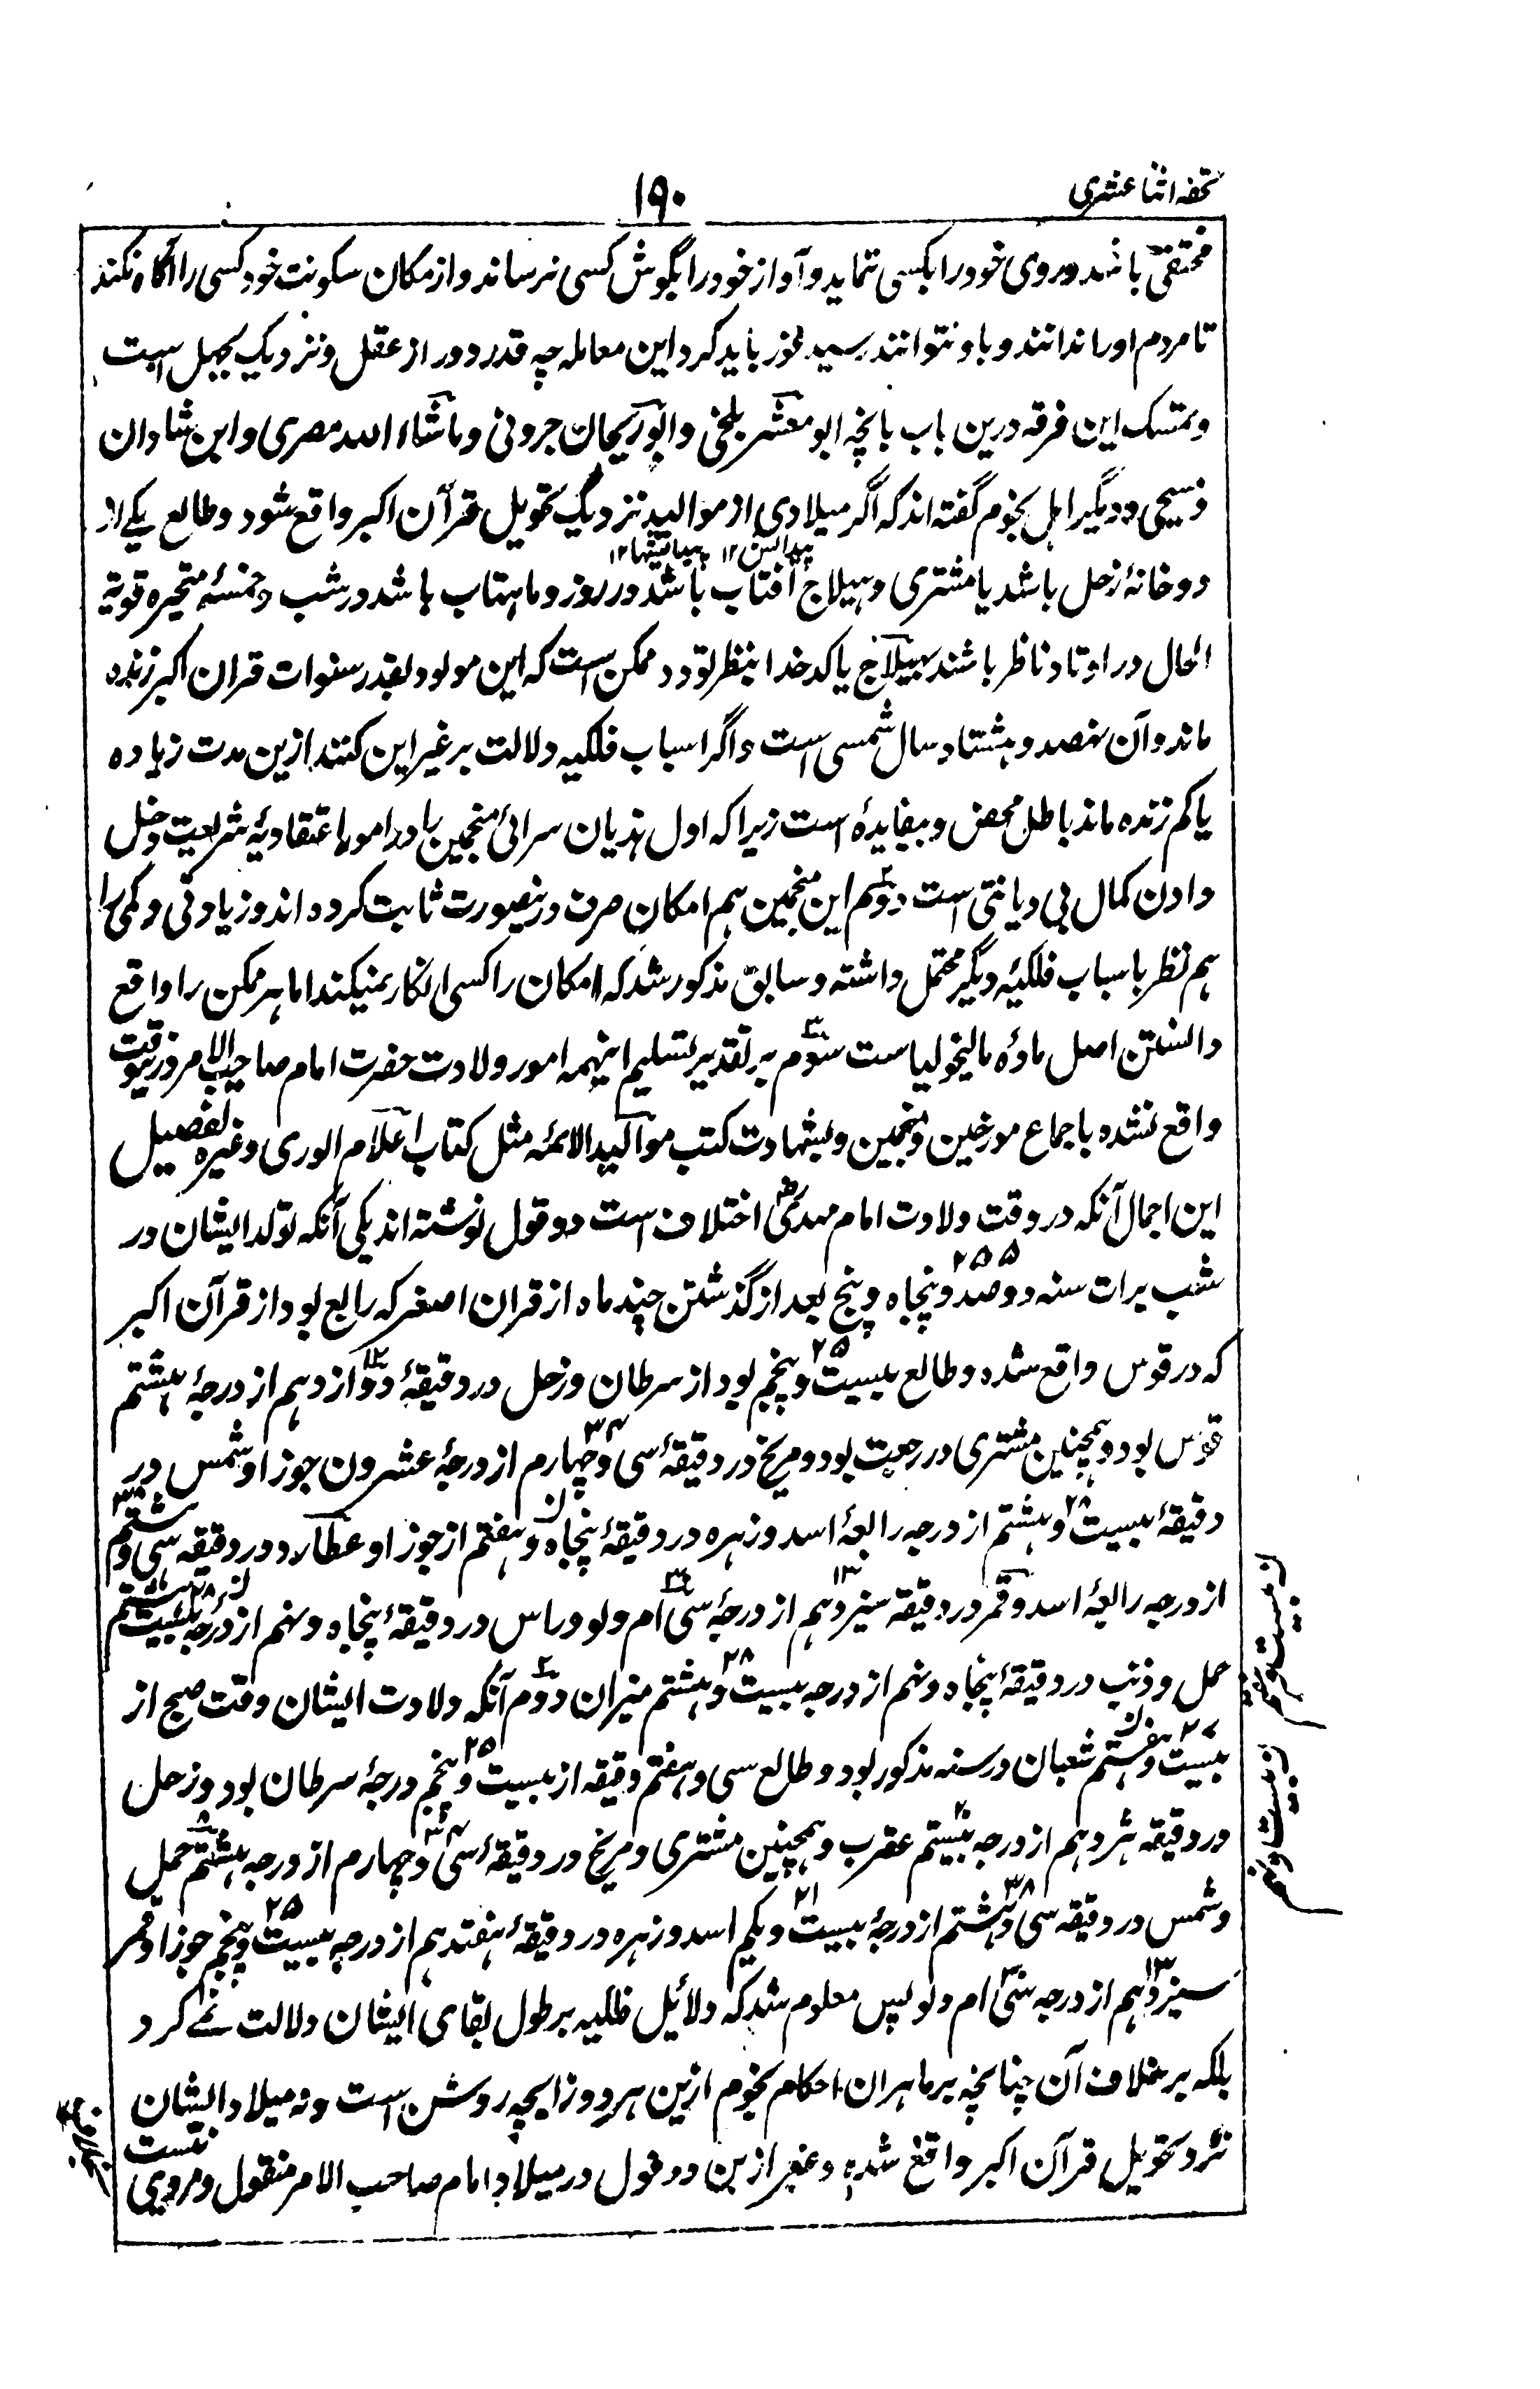 تحفه اثنا عشری
۱۹۰
مختفی باشد و روی خود را بکسی ننماید و آواز خود را بگوش کسی نرساند و از مکان سکونت خود کسی را آگاه نکند
تا مردم او را ندانند و باو نتوانند رسید غور باید کرد این معامله چه قدر دور از عقل و نزدیک بجهل است
و تمسک این فرقه درین باب بانچه ابو معشر بلخی و ابو ریحان جرونی و ماشاء الله مصری و ابن شادان
مسیحی و دیگر اهل نجوم گفته اند که اگر میلادی از موالید نزدیک تحویل قران اکبر واقع شود و طالع یکے از
دو خانهٔ زحل باشد یا مشتری و هیلاج آفتاب باشد در روز و ماهتاب باشد در شب و خمسهٔ متحیره قویة
الحال در اوتاد ناظر باشند بهیلاج یا کدخدا بنظر تودد ممکن است که این مولود بقدر سنوات قران اکبر زنده
ماند و آن نهصد و هشتاد سال شمسی است و اگر اسباب فلکیه دلالت بر غیر این کنند ازین مدت زیاده
یا کم زنده ماند باطل محض و بیفایده است زیرا که اول هذیان سرائی منجمین را در امور اعتقادیهٔ شریعت دخل
دادن کمال بی دیانتی است دوم این منجمین هم امکان صرف درینصورت ثابت کرده اند و زیادتی و کمی را
هم نظر باسباب فلکیهٔ دیگر محتمل داشته و سابق مذکور شد که امکان را کسی انکار نمیکند اما هر ممکن را واقع
دانستن اصل مادهٔ مالیخولیاست سوم بر تقدیر تسلیم اینهمه امور ولادت حضرت امام صاحب الامر درین وقت
واقع نشده باجماع مورخین و منجمین و بشهادت کتب موالید الائمه مثل کتاب اعلام الوری و غیره تفصیل
این اجمال آنکه در وقت ولادت امام مهدی اختلاف است دو قول نوشته اند یکی آنکه تولد ایشان در
شب برات سنه دو صد و پنجاه و پنج ۲۵۵ بعد از گذشتن چند ماه از قران اصغر که رابع بود از قران اکبر
که در قوس واقع شده و طالع بیست و پنجم ۲۵ بود از سرطان و زحل در دقیقهٔ دوازدهم ۱۲ از درجهٔ هشتم
قوس بود و همچنین مشتری در رجعت بود و مریخ در دقیقهٔ سی و چهارم ۳۴ از درجهٔ عشرون جوزا و شمس در
دقیقهٔ بیست و هشتم ۲۸ از درجه رابعهٔ اسد و زهره در دقیقهٔ پنجاه و هفتم از جوزا و عطارد در دقیقه سی و هشتم ۳۸
از درجه رابعهٔ اسد و قمر در دقیقه سیزدهم ۱۳ از درجهٔ سی ام ۳۰ دلو و راس در دقیقهٔ پنجاه و نهم از درجه بیست و هشتم ۲۸
حمل و ذنب در دقیقهٔ پنجاه و نهم از درجه بیست و هشتم ۲۸ میزان دوم آنکه ولادت ایشان وقت صبح از
بیست و هفتم ۲۷ شعبان در سنه مذکور بود و طالع سی و هفتم دقیقه از بیست و پنجم ۲۵ درجهٔ سرطان بود و زحل
در دقیقه هژدهم از درجه بیستم ۲۰ عقرب و همچنین مشتری و مریخ در دقیقهٔ سی و چهارم ۳۴ از درجه هشتم ۸ حمل
و شمس در دقیقه سی و هشتم ۳۸ از درجهٔ بیست و یکم ۲۱ اسد و زهره در دقیقهٔ هفتدهم از درجه بیست و پنجم ۲۵ جوزا و قمر
سیزدهم ۱۳ از درجه سی ام دلو پس معلوم شد که دلائل فلکیه بر طول بقای ایشان دلالت نمے کرد
بلکه بر خلاف آن چنانچه بر ماهران احکام نجوم ازین هر دو زایچه روشن است و نه میلاد ایشان
نزد تحویل قران اکبر واقع شده و غیر ازین دو قول در میلاد امام صاحب الامر منقول و مروی نیست